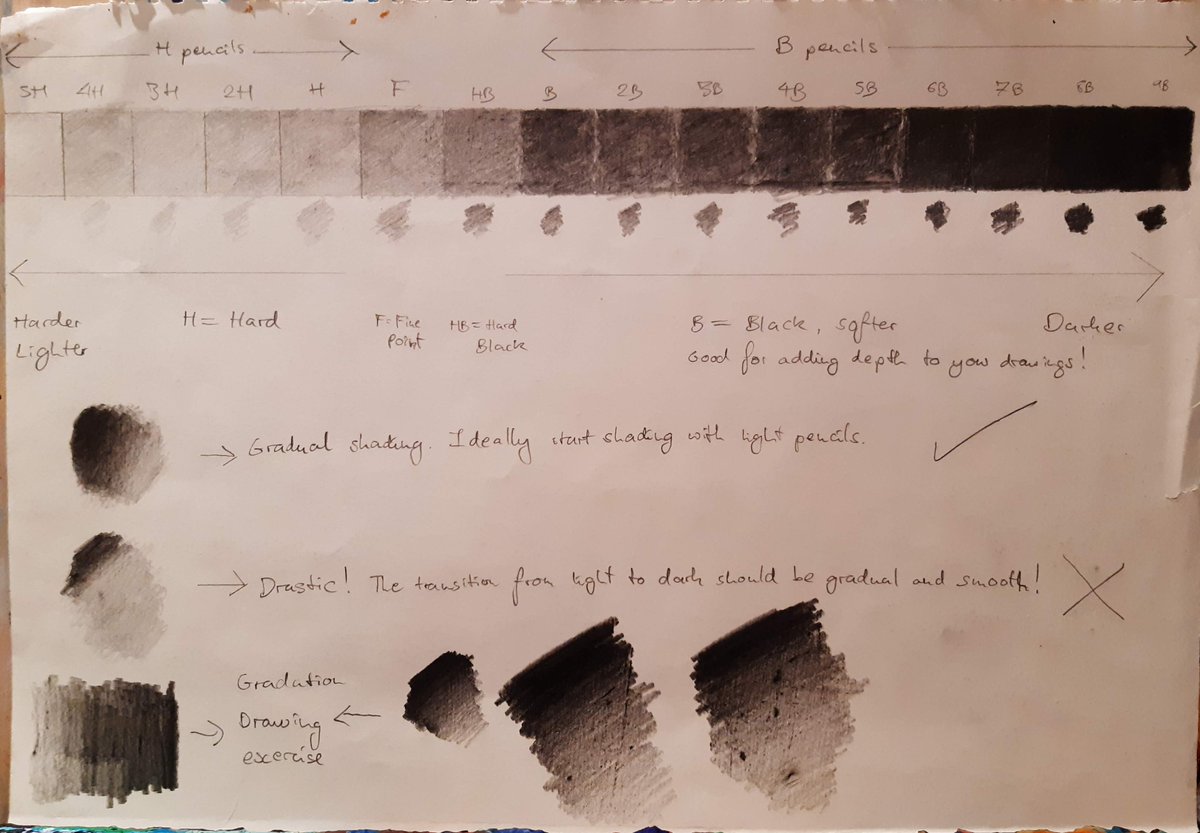 H pencils
B pencils
5H 4H 3H 2H H F HB B 2B 3B 4B 5B 6B 7B 8B 9B
Harder
Lighter
H = Hard
F=Fine
Point
HB=Hard
Black
B = Black, softer
Good for adding depth to your drawings!
Darker
Gradual shading. Ideally start shading with light pencils.
Drastic! The transition from light to dark should be gradual and smooth!
Gradation
Drawing
exercise